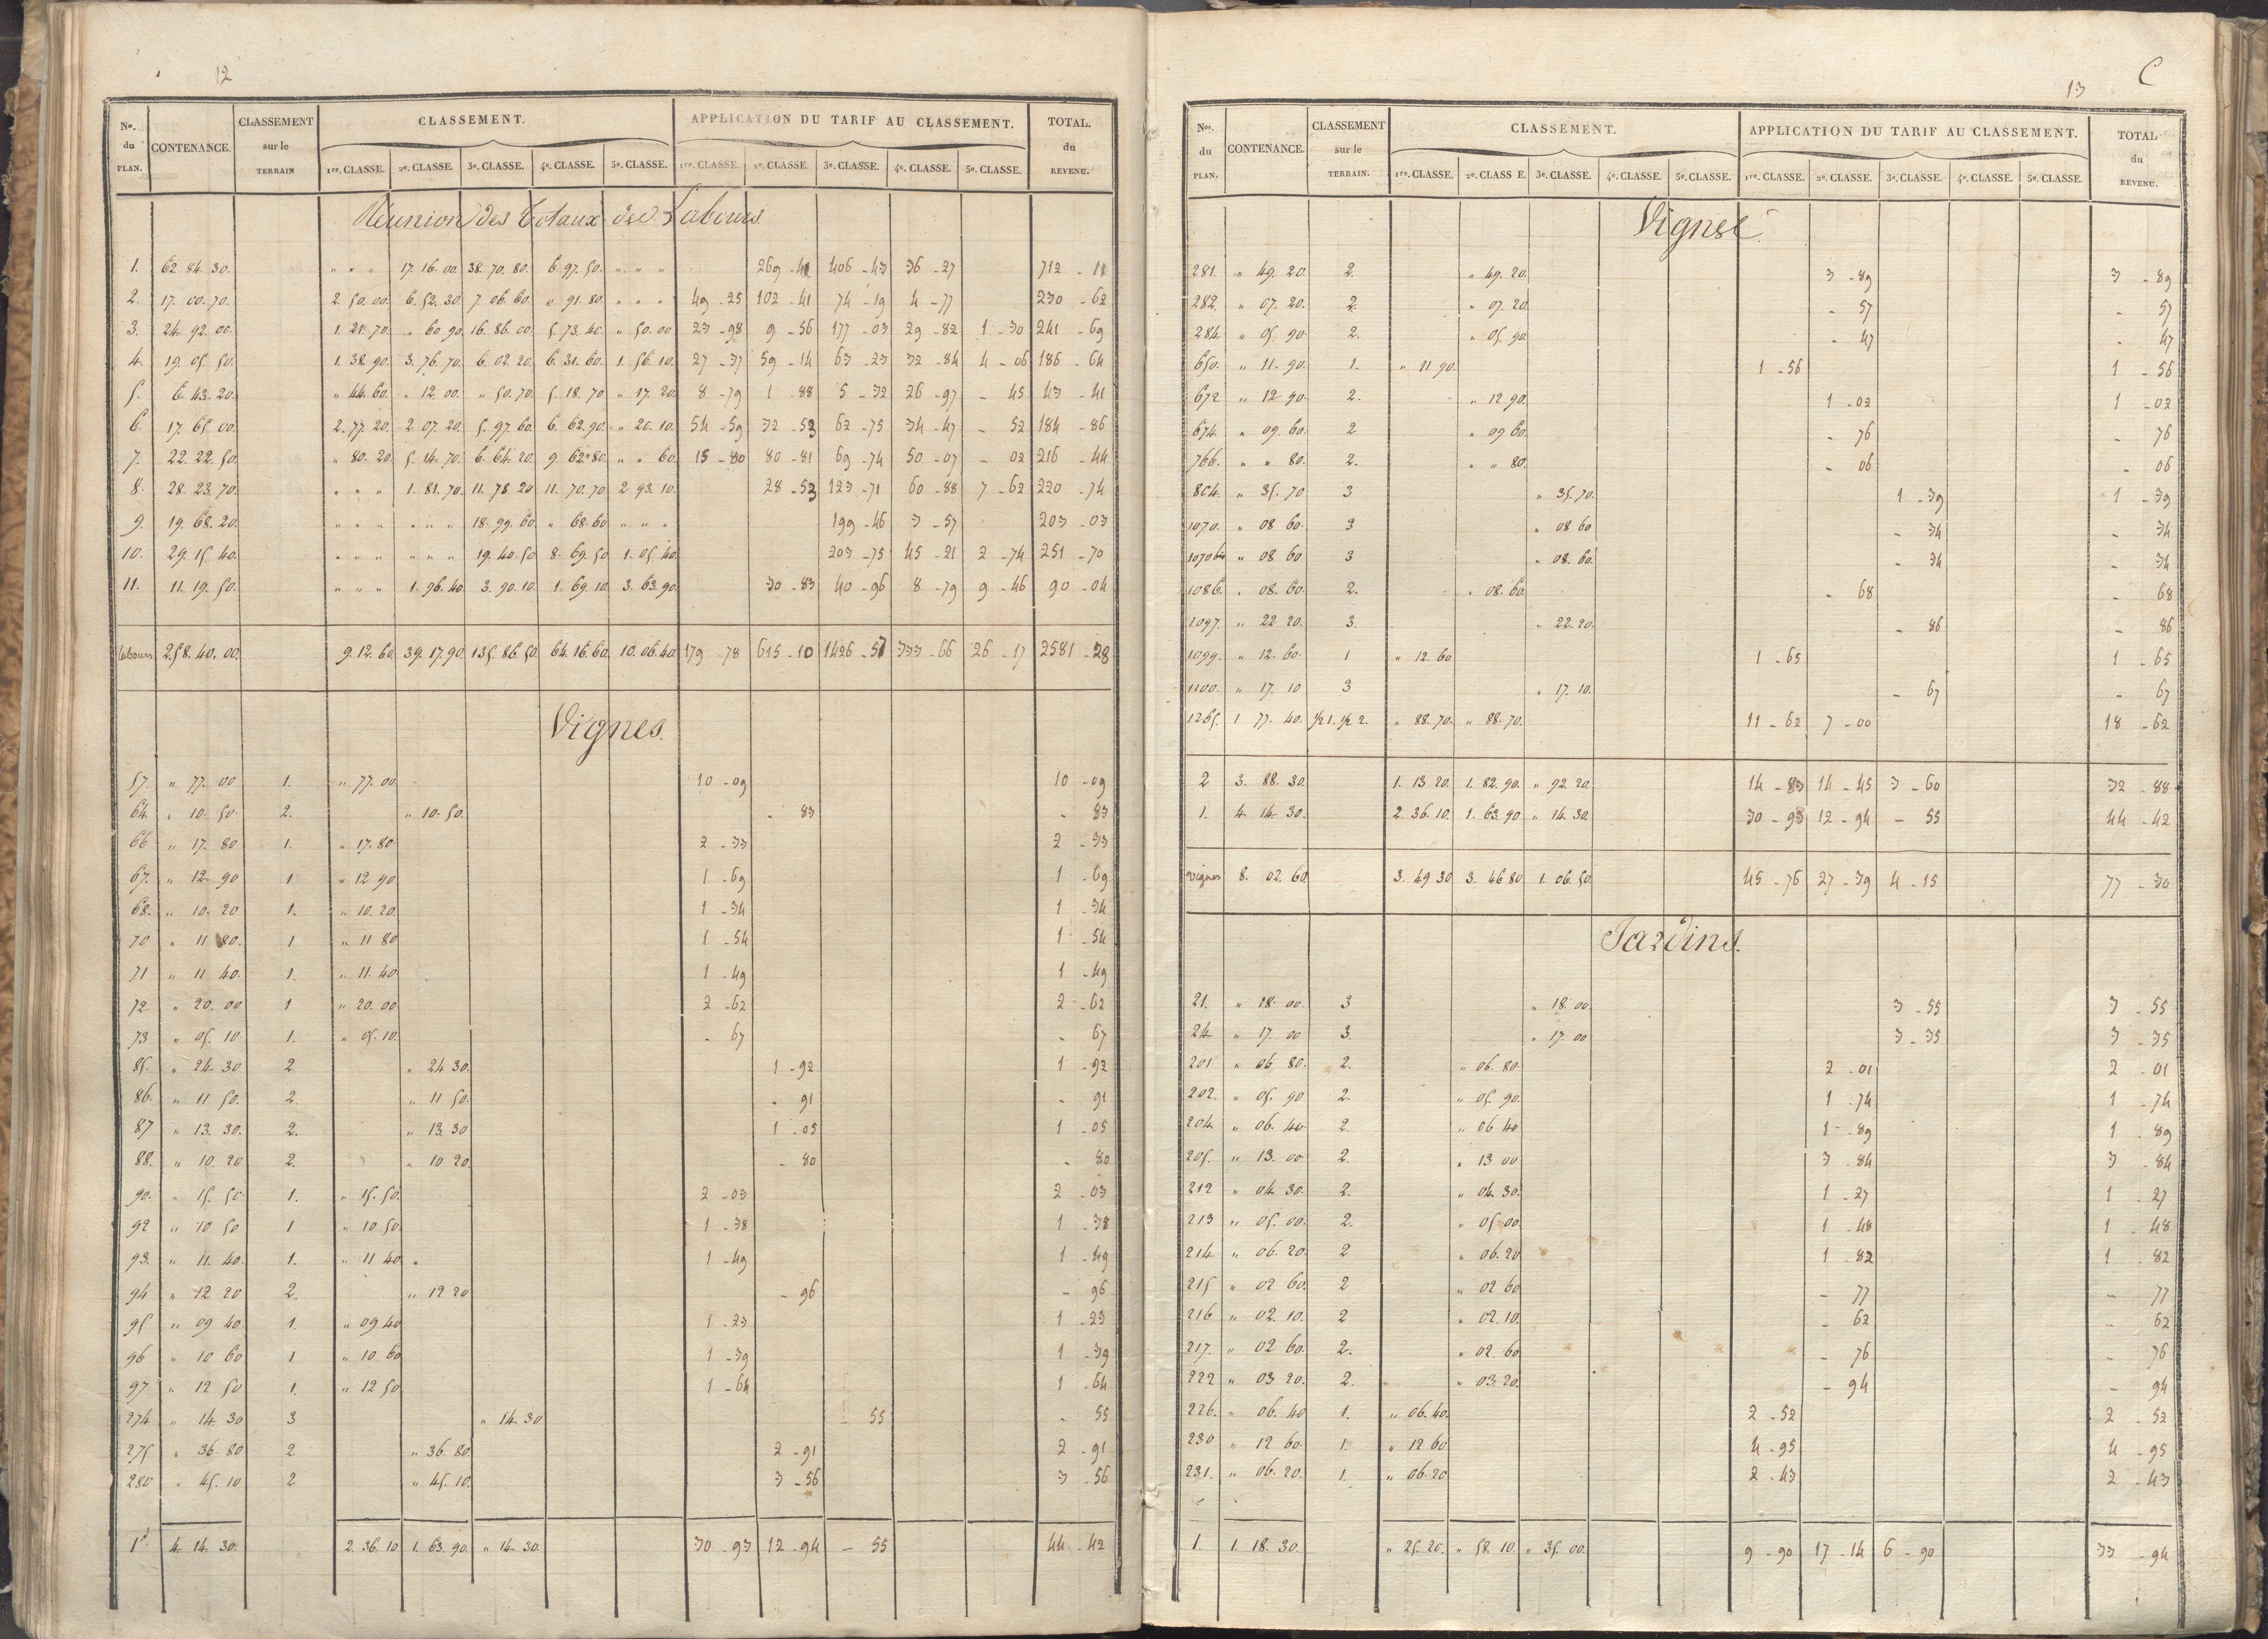 12
Nos. du PLAN. CONTENANCE. CLASSEMENT sur le TERRAIN CLASSEMENT. APPLICATION DU TARIF AU CLASSEMENT. TOTAL. du REVENU.
1re. CLASSE. 2e. CLASSE. 3e. CLASSE. 4e. CLASSE. 5e. CLASSE. 1re. CLASSE. 2e. CLASSE. 3e. CLASSE. 4e. CLASSE. 5e. CLASSE.
Réunion des Totaux des Labours
1. 62. 84. 30. " " " 17. 16. 00. 38. 70. 80. 6. 97. 50. " " " 269 - 41 406 - 43 36 - 27 712 - 11
2. 17. 00. 70. 2. 50. 00. 6. 52. 30. 7. 06. 60. " 91. 80. " " " 49 - 25 102 - 41 74 - 19 4 - 77 230 - 62
3. 24. 92. 00. 1. 21. 70. " 60. 90. 16. 86. 00. 5. 73. 40. " 50. 00 23 - 98 9 - 56 177 - 03 29 - 82 1 - 30 241 - 69
4. 19. 05. 50. 1. 38. 90. 3. 76. 70. 6. 02. 20. 6. 31. 60. 1. 56. 10. 27 - 37 59 - 14 63 - 23 32 - 84 4 - 06 186 - 64
5. 6. 43. 20. " 44. 60. " 12. 00. " 50. 70. 5. 18. 70 " 17. 20. 8 - 79 1 - 88 5 - 32 26 - 97 - 45 43 - 41
6. 17. 65. 00. 2. 77. 20. 2. 07. 20. 5. 97. 60. 6. 62. 90. " 20. 10. 54 - 59 32 - 53 62 - 75 34 - 47 - 52 184 - 86
7. 22. 22. 50. " 80. 20. 5. 14. 70. 6. 64. 20. 9. 62. 80. " " 60. 15 - 80 80 - 81 69 - 74 50 - 07 - 02 216 - 44
8. 28. 23. 70. " " " 1. 81. 70. 11. 78. 20 11. 70. 70 2. 93. 10. 28 - 53 123 - 71 60 - 88 7 - 62 220 - 74
9. 19. 68. 20. " " " " " " 18. 99. 60. " 68. 60 " " " 199 - 46 3 - 57 203 - 03
10. 29. 15. 40. " " " " " " 19. 40. 50 8. 69. 50 1. 05. 40. 203 - 75 45 - 21 2 - 74 251 - 70
11. 11. 19. 50. " " " 1. 96. 40 3. 90. 10. 1. 69. 10. 3. 63. 90. 30 - 83 40 - 96 8 - 79 9 - 46 90 - 04
labours 258. 40. 00. 9. 12. 60. 39. 17. 90. 135. 86. 50. 64. 16. 60. 10. 06. 40. 179 - 78 615 - 10 1426 - 57 333 - 66 26 - 17 2581 - 28
Vignes.
57. " 77. 00 1. " 77. 00 10 - 09 10 - 09
64. " 10. 50. 2. " 10. 50. - 83 - 83
66 " 17. 80 1. " 17. 80. 2 - 33 2 - 33
67. " 12. 90 1 " 12 90 1 - 69 1 - 69
68. " 10. 20 1. " 10. 20. 1 - 34 1 - 34
70 " 11 80. 1 " 11 80 1 - 54 1 - 54
71 " 11 40. 1. " 11. 40. 1 - 49 1 - 49
72 " 20. 00 1 " 20. 00 2 - 62 2 - 62
73 " 05. 10. 1. " 05. 10. - 67 - 67
85. " 24 30 2 " 24 30. 1 - 92 1 - 92
86. " 11 50. 2. " 11 50. - 91 - 91
87 " 13. 30. 2. " 13. 30 1 - 05 1 - 05
88. " 10. 20 2. " 10 20. - 80 - 80
90. " 15. 50. 1. " 15. 50. 2 - 03 2 - 03
92 " 10 50 1 " 10 50. 1 - 38 1 - 38
93. " 11. 40. 1. " 11 40 1 - 49 1 - 49
94 " 12 20 2. " 12 20 - 96 - 96
95 " 09 40 1. " 09 40 1 - 23 1 - 23
96 " 10 60 1 " 10 60 1 - 39 1 - 39
97 " 12 50 1. " 12 50 1 - 64 1 - 64
274 " 14 30 3 " 14. 30 - 55 - 55
275 " 36. 80 2 " 36. 80. 2 - 91 2 - 91
280 " 45. 10 2 " 45. 10. 3 - 56 3 - 56
1 4 14 30. 2. 36. 10 1. 63. 90. " 14. 30. 30 - 93 12 - 94 - 55 44 - 42
13
C
Nos. du PLAN. CONTENANCE. CLASSEMENT sur le TERRAIN. CLASSEMENT. APPLICATION DU TARIF AU CLASSEMENT. TOTAL du REVENU.
1re. CLASSE. 2e. CLASS E. 3e. CLASSE. 4e. CLASSE. 5e. CLASSE. 1re. CLASSE. 2e. CLASSE. 3e. CLASSE. 4e. CLASSE. 5e. CLASSE.
Vignes
281. " 49. 20. 2. " 49. 20. 3 - 89 3 - 89
282. " 07. 20. 2. " 07. 20 - 57 - 57
284. " 05. 90. 2. " 05. 90. - 47 - 47
650. " 11. 90. 1. " 11 90. 1 - 56 1 - 56
672 " 12 90. 2. " 12 90. 1 - 02 1 - 02
674. " 09. 60. 2 " 09 60. - 76 - 76
766. " " 80. 2. " " 80. - 06 - 06
804. " 35. 70 3 " 35. 70. 1 - 39 1 - 39
1070. " 08 60. 3 " 08 60 - 34 - 34
1070 bis " 08 60 3 " 08. 60. - 34 - 34
1086. " 08. 60. 2. " 08. 60. - 68 - 68
1097. " 22 20. 3. " 22. 20. - 86 - 86
1099. " 12. 60. 1 " 12. 60 1 - 65 1 - 65
1100. " 17. 10 3 " 17. 10. - 67 - 67
1265. 1 77. 40. ½ 1. ½ 2. " 88. 70. " 88. 70. 11 - 62 7 - 00 18 - 62
2 3. 88. 30. 1. 13 20. 1. 82. 90. " 92. 20. 14 - 83 14 - 45 3 - 60 32 - 88
1. 4 14 30. 2. 36. 10. 1. 63. 90 " 14. 30. 30 - 93 12 - 94 - 55 44 - 42
vignes 8. 02. 60. 3. 49 30 3. 46 80 1. 06. 50. 45 - 76 27 - 39 4 - 15 77 - 30
Jardins.
21. " 18. 00. 3 " 18. 00. 3 - 55 3 - 55
24 " 17. 00 3. " 17. 00 3 - 35 3 - 35
201 " 06 80. 2. " 06. 80. 2 - 01 2 - 01
202. " 05. 90 2. " 05. 90. 1 - 74 1 - 74
204 " 06. 40. 2. " 06 40 1 - 89 1 - 89
205. " 13. 00. 2. " 13 00 3 - 84 3 - 84
212 " 04. 30. 2. " 04. 30. 1 - 27 1 - 27
213 " 05. 00. 2. " 05 00. 1 - 48 1 - 48
214 " 06. 20. 2 " 06. 20 1 - 82 1 - 82
215 " 02 60. 2 " 02 60 - 77 - 77
216 " 02. 10. 2 " 02. 10. - 62 - 62
217. " 02 60. 2. " 02. 60 - 76 - 76
222 " 03 20. 2. " 03. 20. - 94 - 94
226. " 06. 40 1. " 06. 40. 2 - 52 2 - 52
230 " 12 60. 1. " 12 60. 4 - 95 4 - 95
231. " 06. 20. 1. " 06. 20 2 - 43 2 - 43
1. 1. 18. 30. " 25. 20. " 58. 10. " 35. 00. 9 - 90 17 - 14 6 - 90 33 - 94